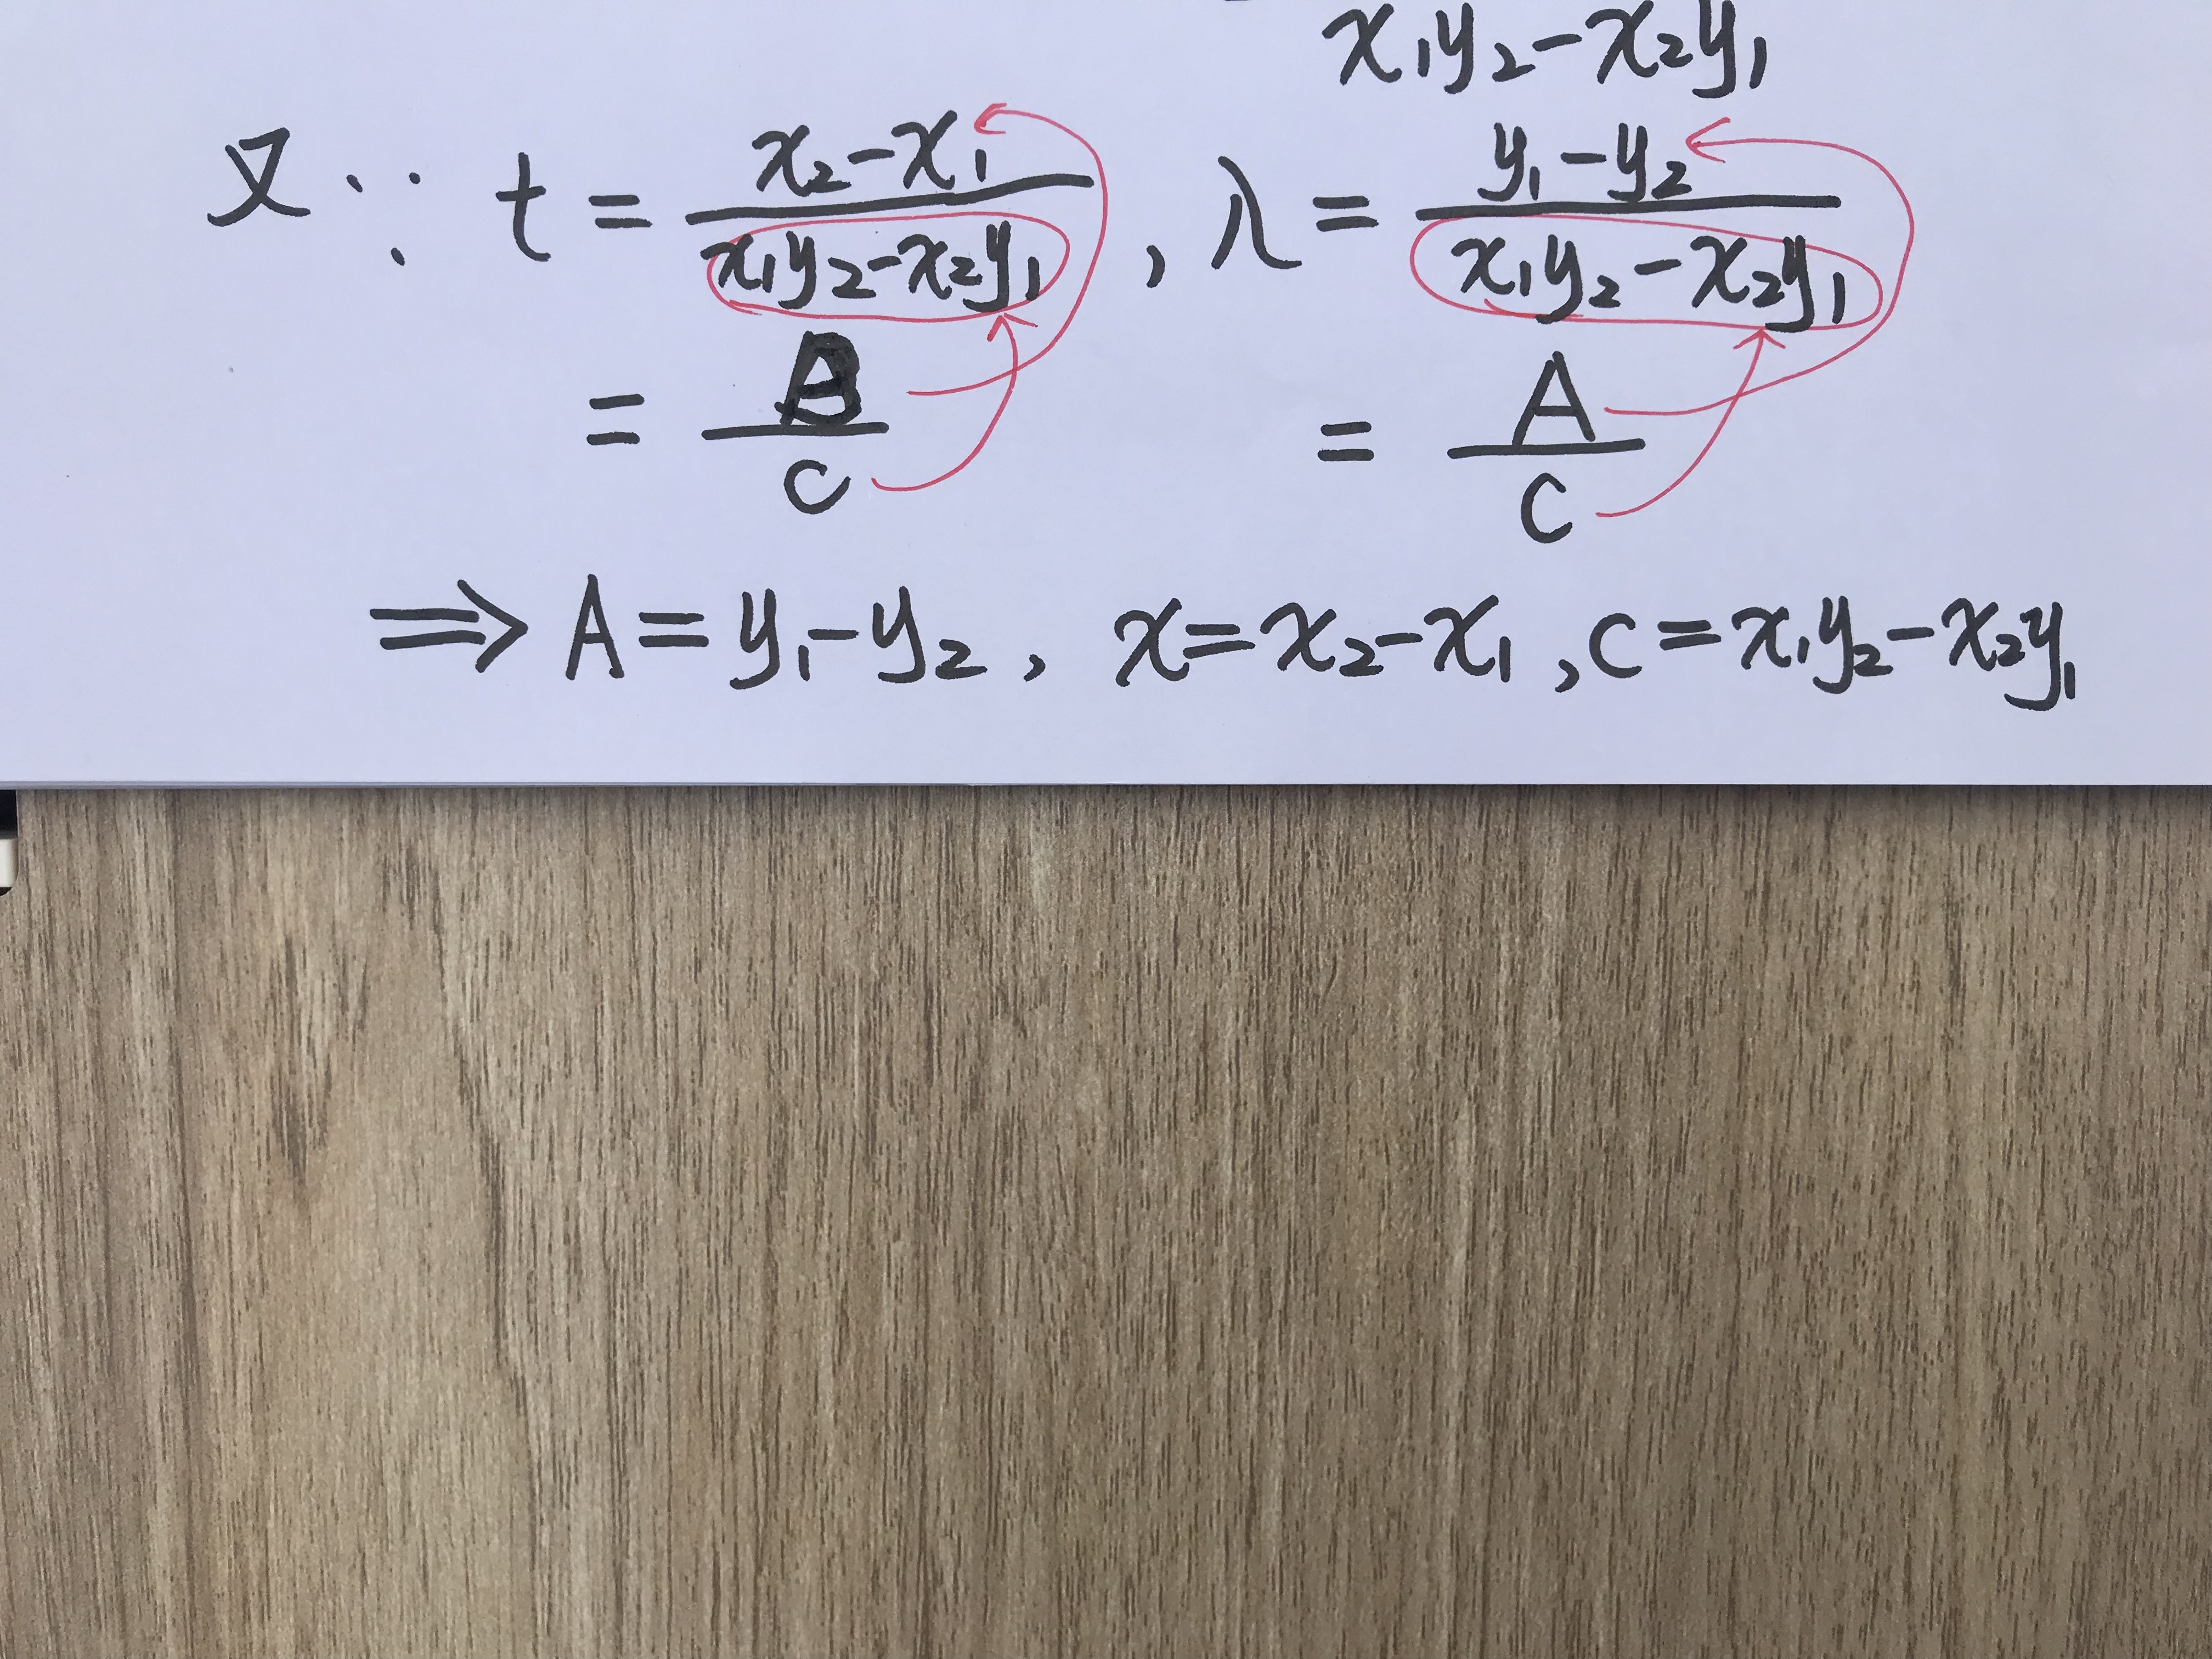 x₁y₂-x₂y₁
又∵ t = (x₂-x₁)/(x₁y₂-x₂y₁) , λ = (y₁-y₂)/(x₁y₂-x₂y₁)
= B/C = A/C
⇒ A = y₁-y₂, x = x₂-x₁, C = x₁y₂-x₂y₁